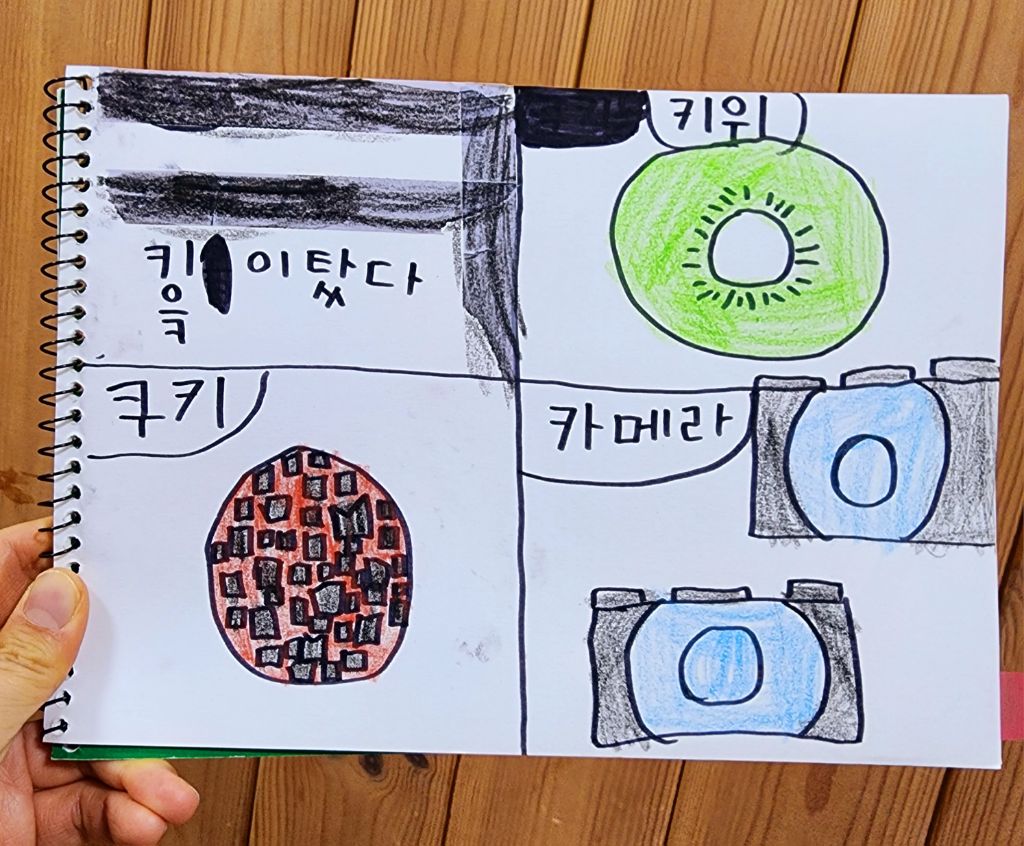 키읔이탔다
키위
쿠키
카메라